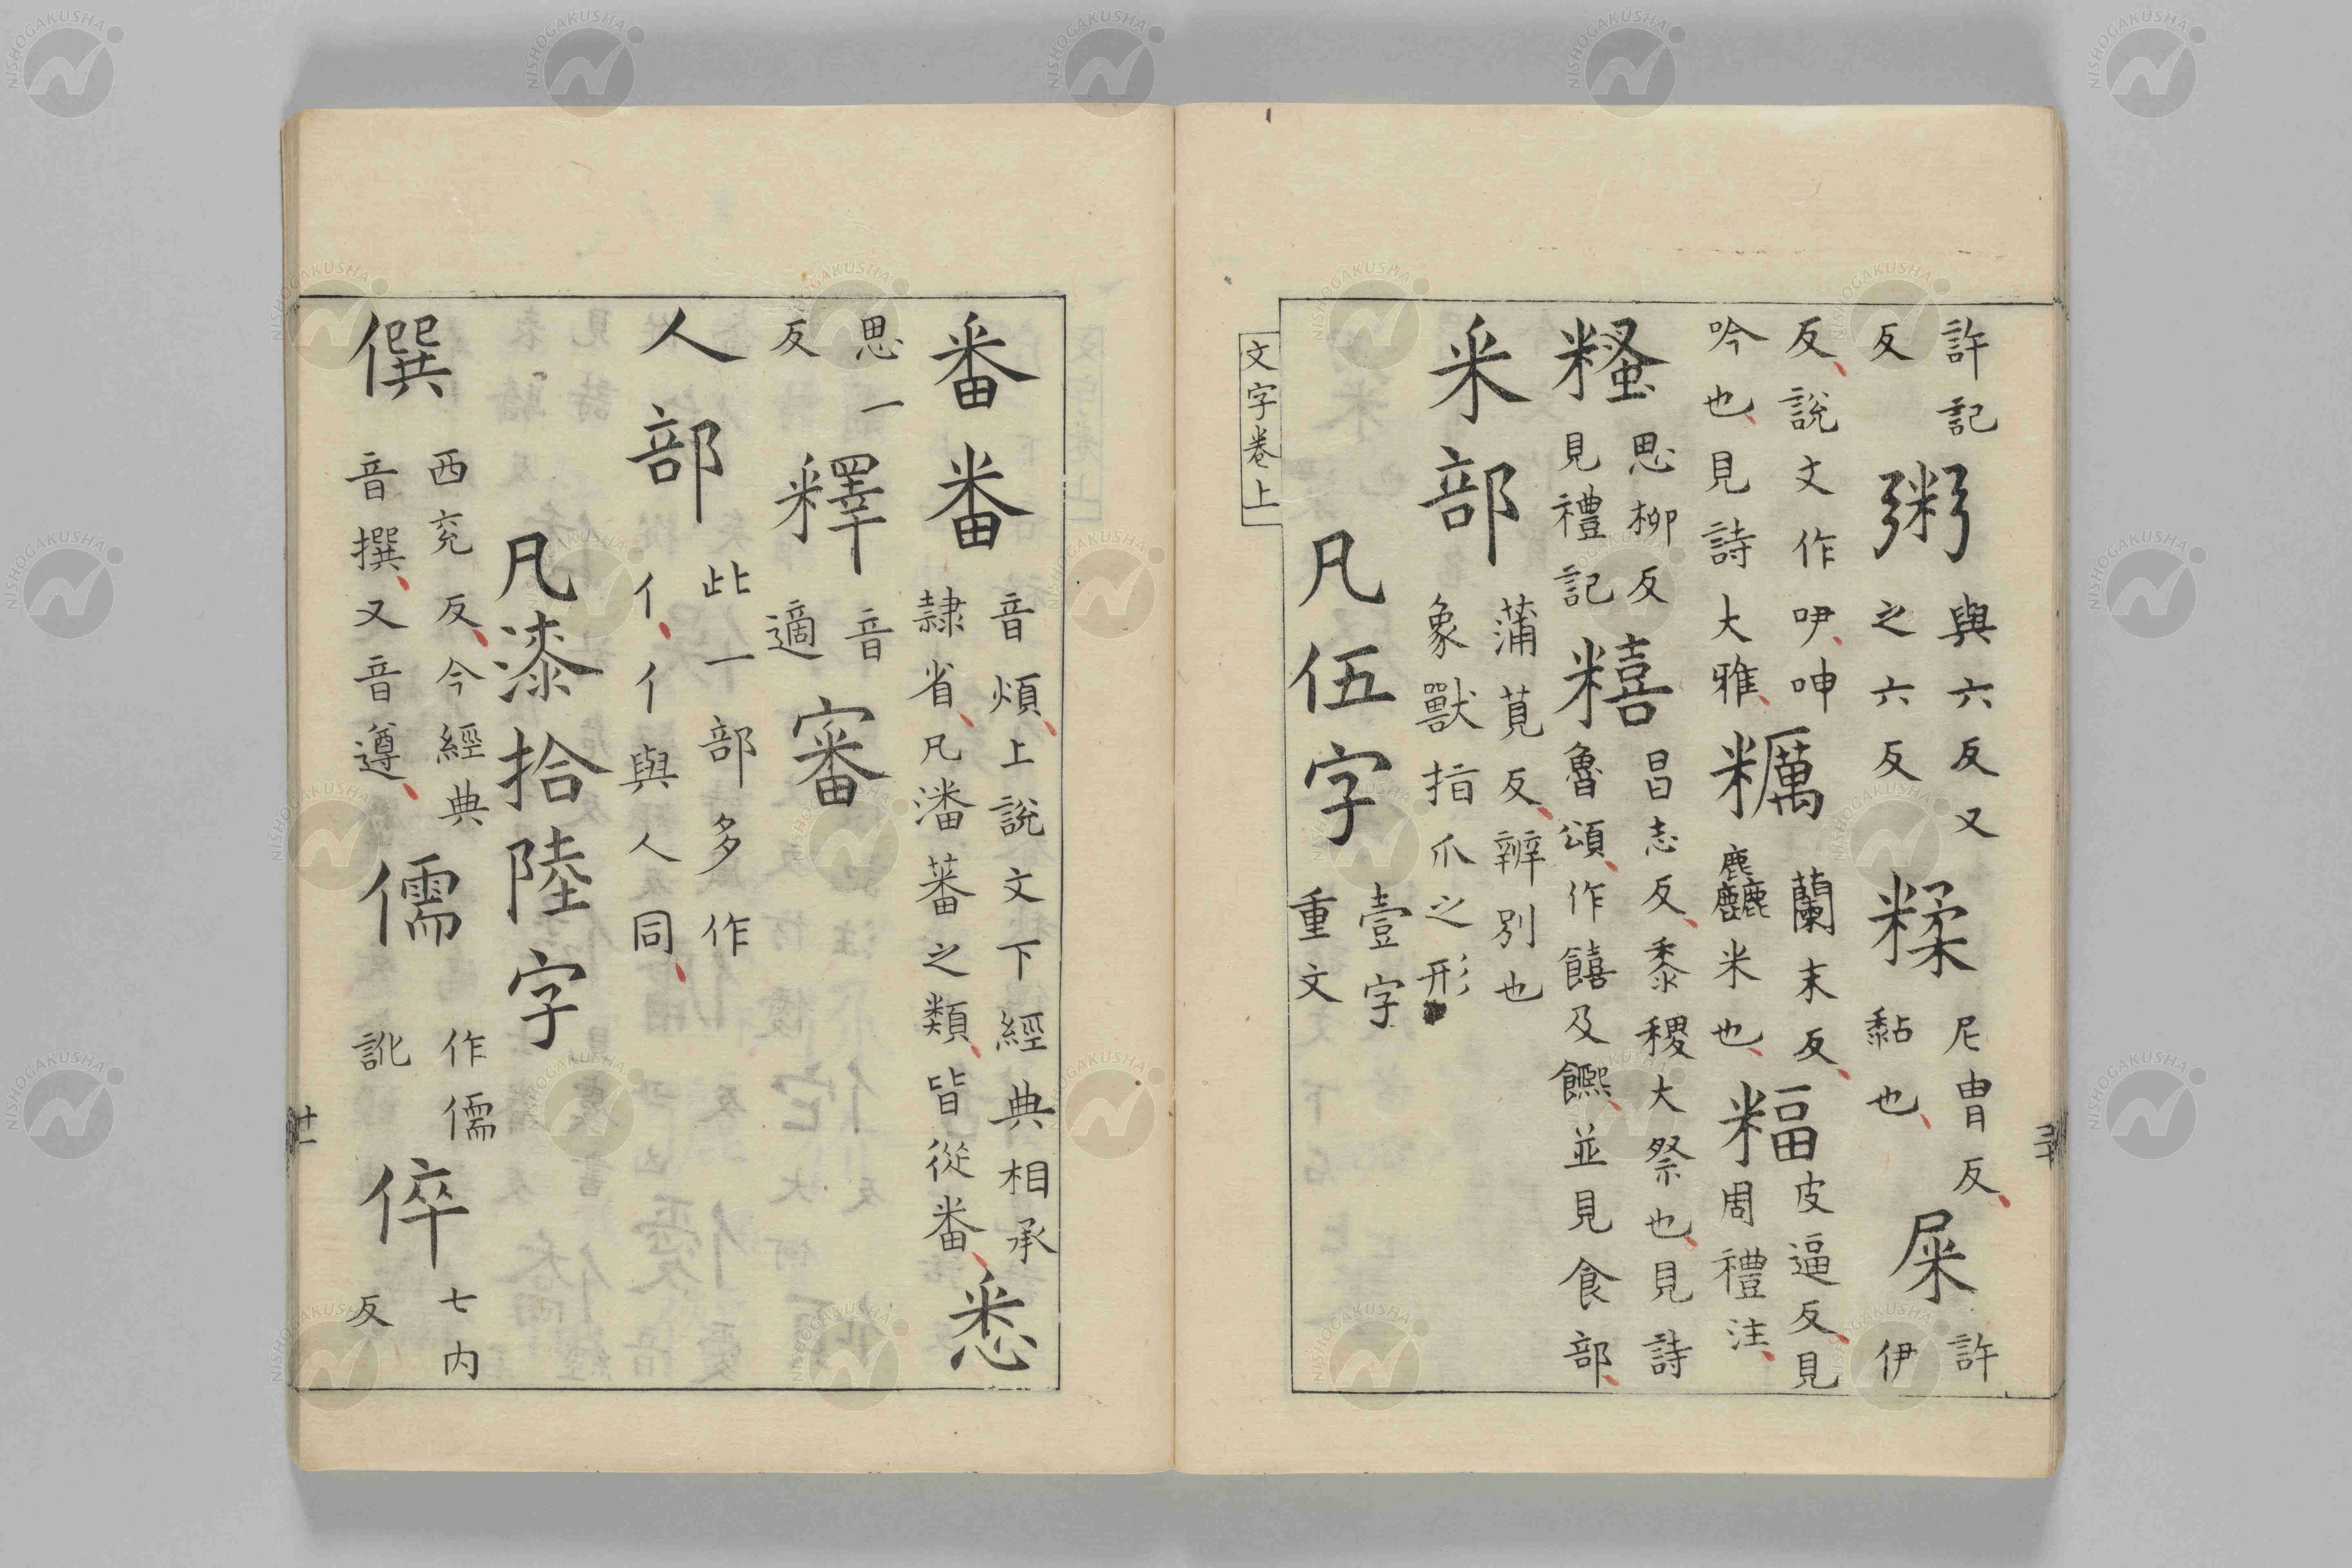 許記反粥與六反又之六反糅尼胄反黏也屎許伊
反説文作吚呻吟也見詩大雅糲蘭末反麤米也䊧皮逼反見周禮注
糔思柳反見禮記糦昌志反黍稷大祭也見詩魯頌作饎及䭒並見食部
釆部蒲莧反辨別也象獸指爪之形
凡伍字壹字重文
文字卷上
番番音煩上説文下經典相承隷省凡潘蕃之類皆從番悉
思一反釋音適審
人部此一部多作亻亻與人同
凡漆拾陸字
僎西兖反今經典音撰又音遵儒作儒訛倅七内反
NISHOGAKUSHA